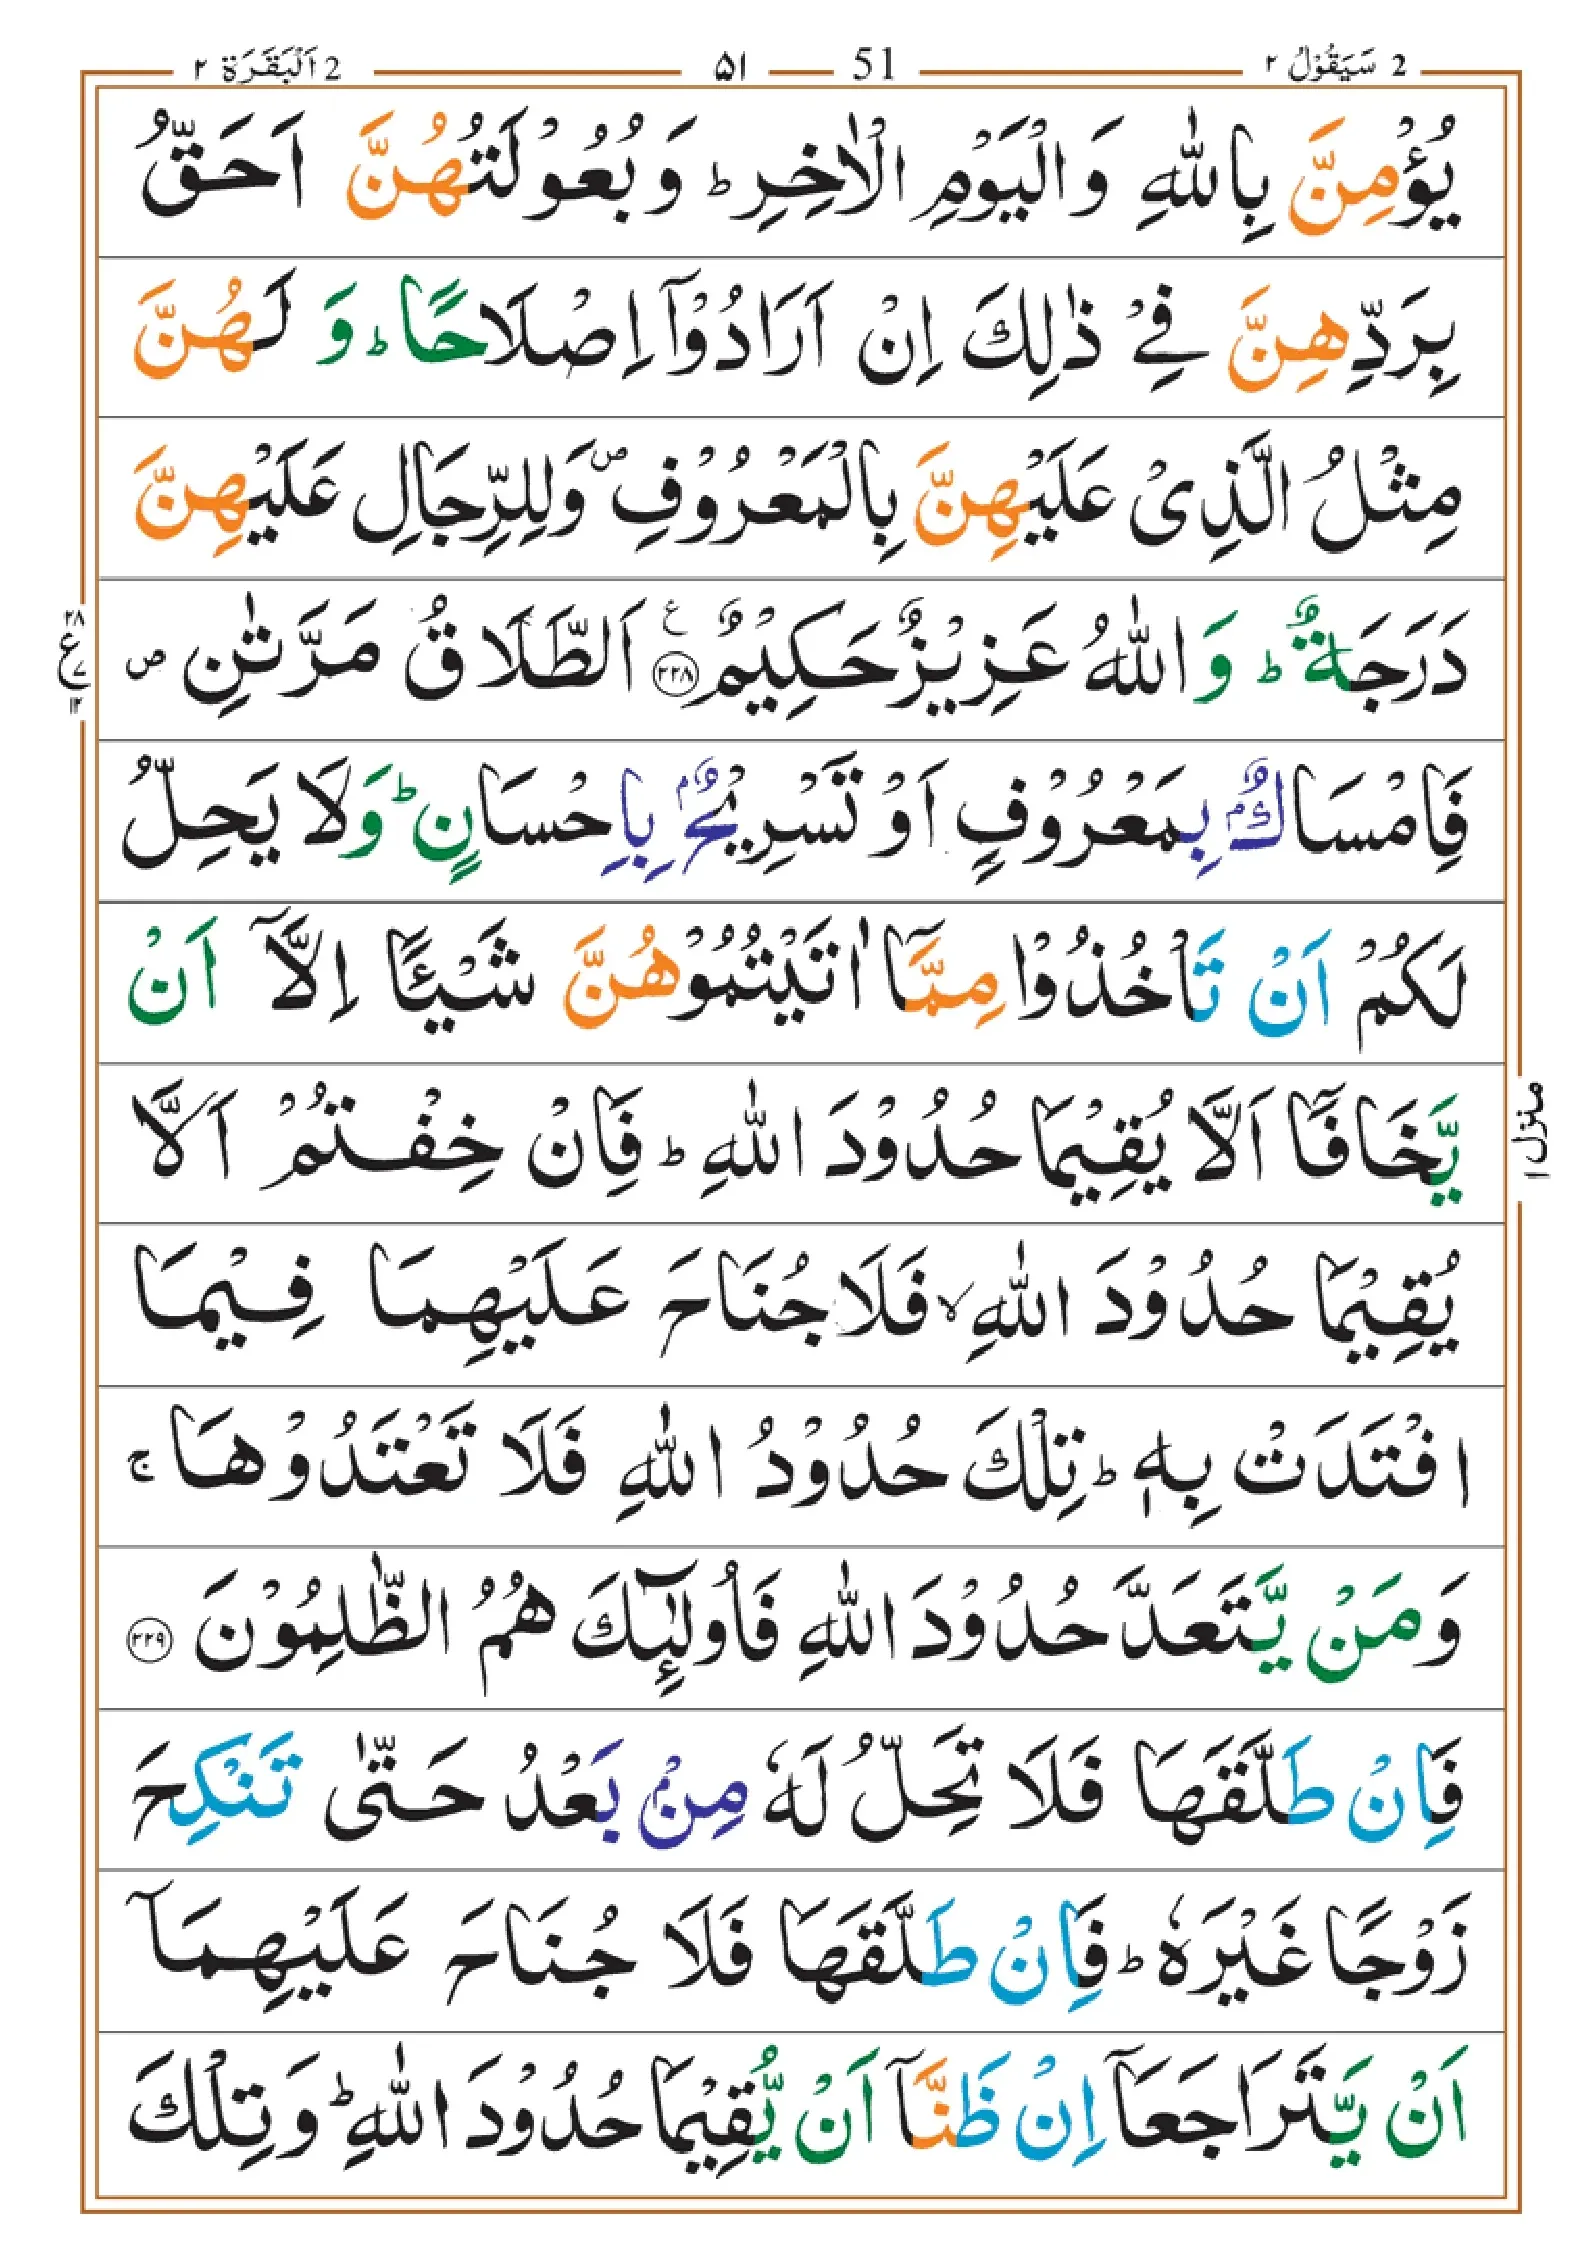 2 سَيَقُوْلُ ٢ 51 ۵۱ 2 اَلْبَقَرَة ٢
يُؤْمِنَّ بِاللّٰهِ وَالْيَوْمِ الْاٰخِرِ ؕ وَبُعُوْلَتُهُنَّ اَحَقُّ
بِرَدِّهِنَّ فِيْ ذٰلِكَ اِنْ اَرَادُوْۤا اِصْلَاحًا ؕ وَ لَهُنَّ
مِثْلُ الَّذِىْ عَلَيْهِنَّ بِالْمَعْرُوْفِ ۪ وَلِلرِّجَالِ عَلَيْهِنَّ
دَرَجَةٌ ؕ وَ اللّٰهُ عَزِيْزٌ حَكِيْمٌ ﴿۲۲۸﴾ ع اَلطَّلَاقُ مَرَّتٰنِ ۪
۲۸ ع ۷ ۱۲
فَاِمْسَاكٌۢ بِمَعْرُوْفٍ اَوْ تَسْرِيْحٌۢ بِاِحْسَانٍ ؕ وَلَا يَحِلُّ
لَكُمْ اَنْ تَاْخُذُوْا مِمَّاۤ اٰتَيْتُمُوْهُنَّ شَيْـًٔا اِلَّاۤ اَنْ
يَّخَافَاۤ اَلَّا يُقِيْمَا حُدُوْدَ اللّٰهِ ؕ فَاِنْ خِفْتُمْ اَلَّا
منزل ۱
يُقِيْمَا حُدُوْدَ اللّٰهِ ۙ فَلَا جُنَاحَ عَلَيْهِمَا فِيْمَا
افْتَدَتْ بِهٖ ؕ تِلْكَ حُدُوْدُ اللّٰهِ فَلَا تَعْتَدُوْهَا ۚ
وَمَنْ يَّتَعَدَّ حُدُوْدَ اللّٰهِ فَاُولٰٓئِكَ هُمُ الظّٰلِمُوْنَ ﴿۲۲۹﴾
فَاِنْ طَلَّقَهَا فَلَا تَحِلُّ لَهٗ مِنْۢ بَعْدُ حَتّٰى تَنْكِحَ
زَوْجًا غَيْرَهٗ ؕ فَاِنْ طَلَّقَهَا فَلَا جُنَاحَ عَلَيْهِمَاۤ
اَنْ يَّتَرَاجَعَاۤ اِنْ ظَنَّاۤ اَنْ يُّقِيْمَا حُدُوْدَ اللّٰهِ ؕ وَتِلْكَ